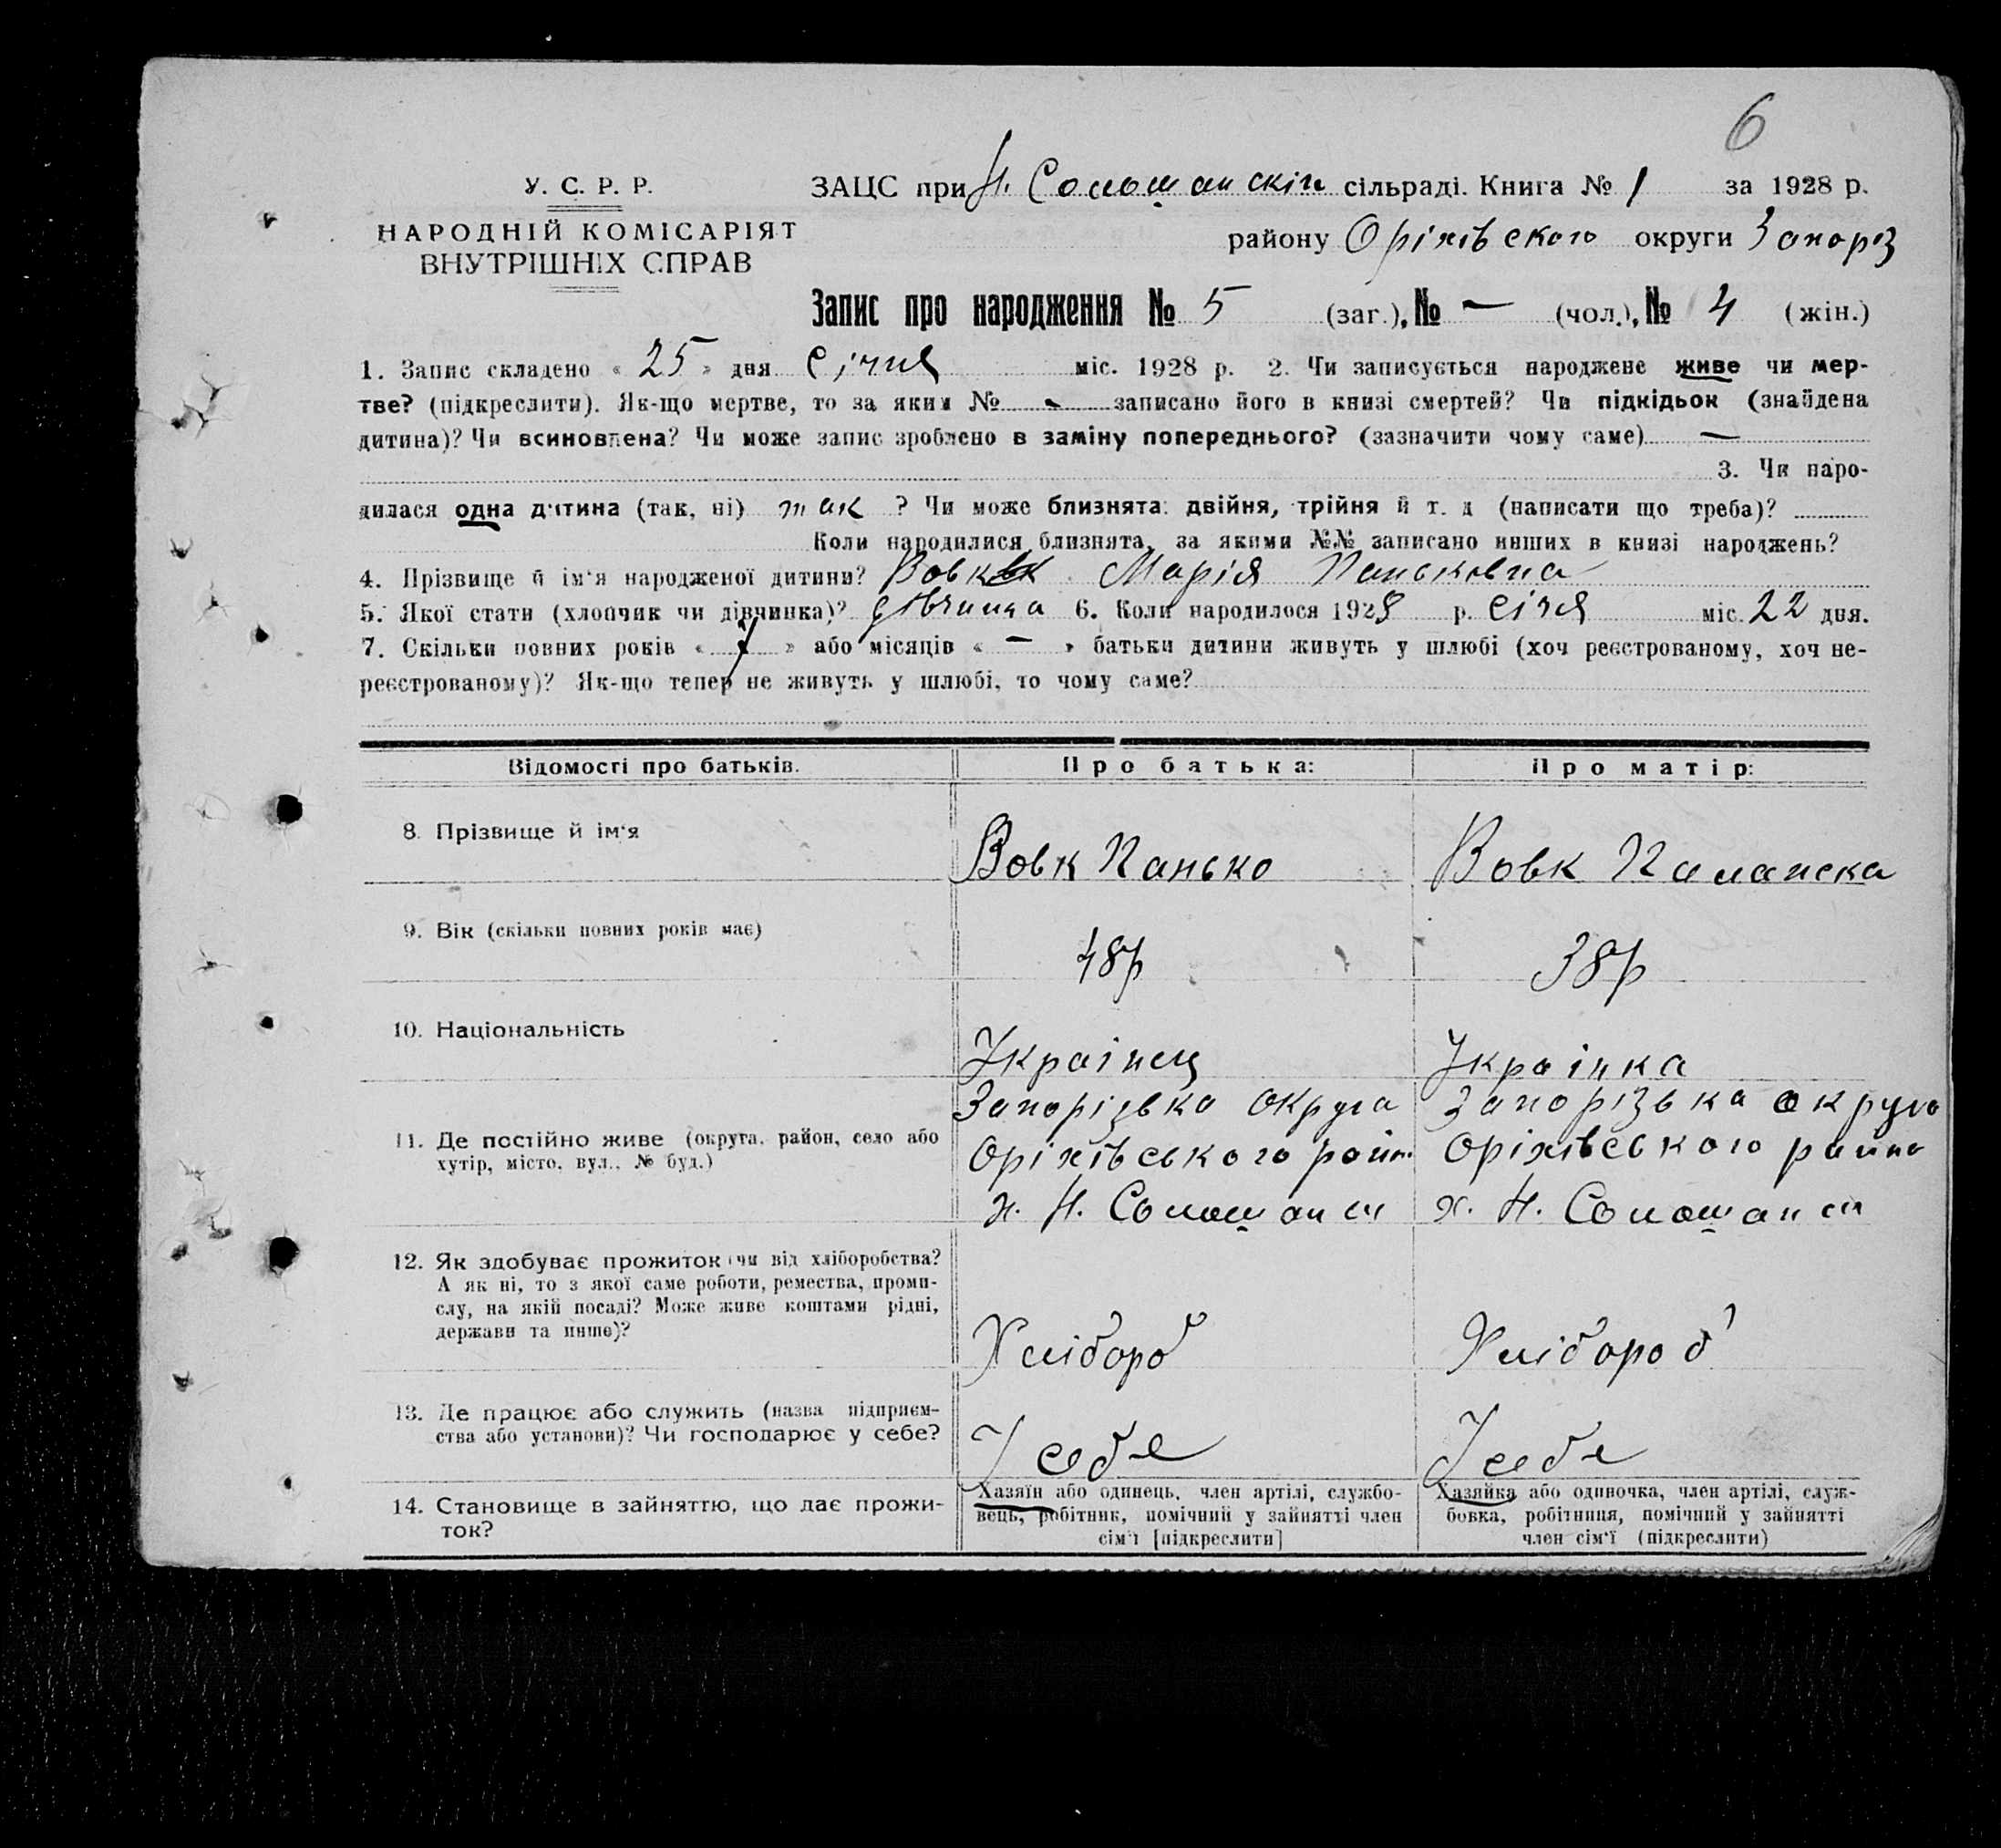 6
У. С. Р. Р.
НАРОДНІЙ КОМІСАРІЯТ
ВНУТРІШНІХ СПРАВ
ЗАЦС при Н. Солошанскій сільраді. Книга № 1 за 1928 р.
району Оріхівского округи Запоріз
Запис про народження № 5 (заг.), № — (чол.), № 4 (жін.)
1. Запис складено « 25 » дня Січня міс. 1928 р. 2. Чи записується народжене живе чи мер-
тве? (підкреслити). Як-що мертве, то за яким № - записано його в книзі смертей? Чи підкідьок (знайдена
дитина)? Чи всиновлена? Чи може запис зроблено в заміну попереднього? (зазначити чому саме) —
3. Чи наро-
дилася одна дитина (так, ні) так ? Чи може близнята: двійня, трійня й т. д (написати що треба)?
Коли народилися близнята, за якими №№ записано инших в книзі народжень?
4. Прізвище й ім'я народженої дитини? Вовк Марія Паньковна
5. Якої стати (хлопчик чи дівчинка)? дівчинка 6. Коли народилося 1928 р. Січя міс. 22 дня.
7. Скільки повних років « » або місяців « — » батьки дитини живуть у шлюбі (хоч реєстрованому, хоч не-
реєстрованому)? Як-що тепер не живуть у шлюбі, то чому саме?
Відомості про батьків. Про батька: Про матір:
8. Прізвище й ім'я Вовк Панько Вовк Паланска
9. Вік (скільки повних років має) 48р 38р
10. Національність Украінец Украінка
Запорізька округа Запорізька округа
11. Де постійно живе (округа, район, село або Оріхівського район Оріхівського району
хутір, місто, вул., № буд.)
х. Н. Солошан х. Н. Солошан
12. Як здобуває прожиток (чи від хліборобства?
А як ні, то з якої саме роботи, ремества, проми-
слу, на якій посаді? Може живе коштами рідні,
держави та инше)? Хлібороб Хлібороб
13. Де працює або служить (назва підприєм-
ства або установи)? Чи господарює у себе? У себе У себе
14. Становище в зайняттю, що дає прожи-
ток?
Хазяїн або одинець, член артілі, службо-
вець, робітник, помічний у зайнятті член
сім'ї [підкреслити]
Хазяйка або одиночка, член артілі, служ-
бовка, робітниця, помічний у зайнятті
член сім'ї (підкреслити)